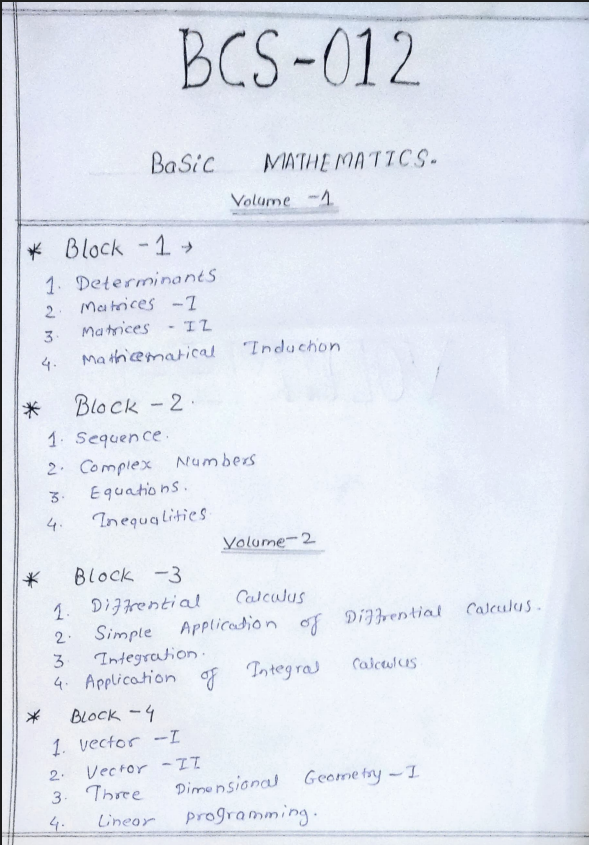 BCS-012
BaSic MATHEMATICS.
Volume -1
* Block -1 →
1. Determinants
2. Matrices -I
3. Matrices - II
4. Mathematical Induction
* Block - 2.
1. Sequence.
2. Complex Numbers
3. Equations.
4. Inequalities
Volume-2
* Block -3
1. Diffrential Calculus
2. Simple Application of Diffrential Calculus.
3. Integration.
4. Application of Integral Calculus
* BLock -4
1. vector -I
2. Vector -II
3. Three Dimensional Geometry -I
4. Linear programming.